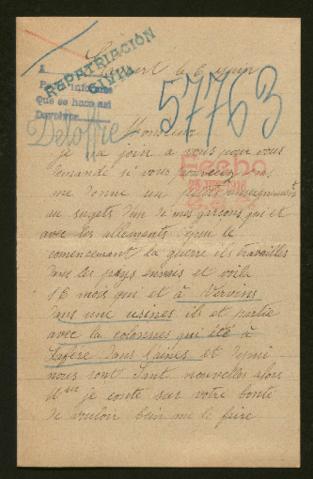 REPATRIACIÓN
CIVIL
Que se hace así
Devolver
57763
Deloffre
le 6 juin
Monsieur
je vous
demande si vous pourriez
me donne un petit renseignements
au sugets d'un de mes garçons qui et
avec les allements depui le
comencement la guerre ils travailles
dans les pays envais et voila
18 mois qui et à Vervins
dans une usines il et partie
avec la colonnes qui été à
Lafere dans l'aisne et depui
nous sont sant nouvelles alors
je conte sur votre bonté
de vouloir bein me le faire